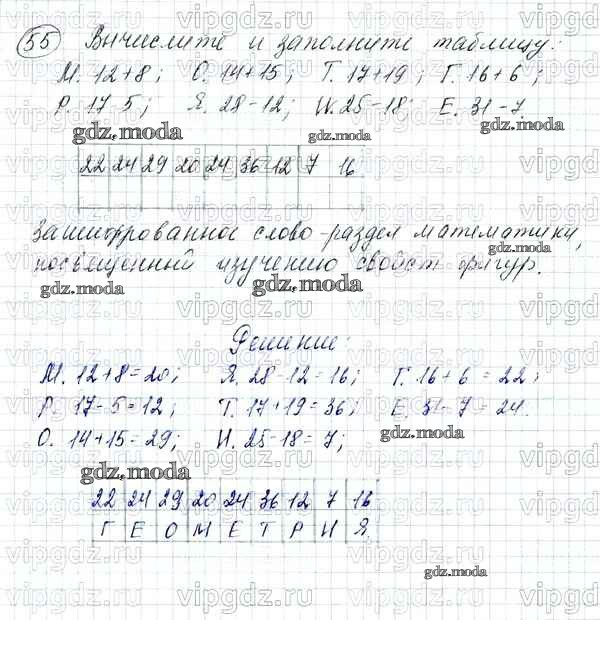 55 Вычислите и заполните таблицу:
М. 12+8; О. 14+15; Т. 17+19; Г. 16+6;
Р. 17-5; Я. 28-12; И. 25-18; Е. 31-7
gdz.moda gdz.moda gdz.moda
22 24 29 20 24 36 12 7 16
Зашифрованное слово-раздел математики,
посвященный изучению свойст фигур.
gdz.moda gdz.moda gdz.moda
Решение:
М. 12+8=20; Я. 28-12=16; Г. 16+6=22;
Р. 17-5=12; Т. 17+19=36; Е. 31-7=24.
О. 14+15=29; И. 25-18=7;
gdz.moda
gdz.moda
22 24 29 20 24 36 12 7 16
Г Е О М Е Т Р И Я
gdz.moda
vipgdz.ru